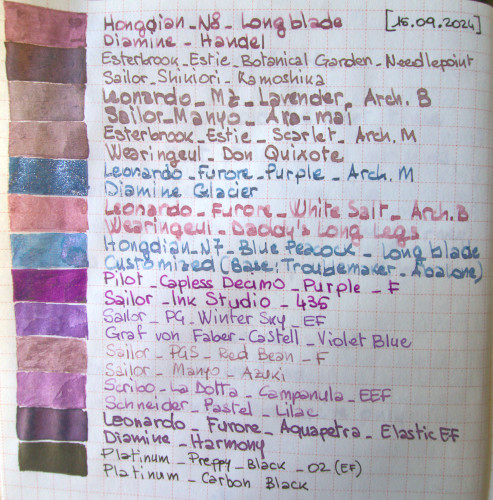 Hongdian_N8_Long blade [15.09.2024]
Diamine - Handel
Esterbrook_Estie_Botanical Garden_Needlepoint
Sailor_Shikiori_Kamoshika
Leonardo_MZ_Lavender_Arch. B
Sailor_Manyo_Ara-mai
Esterbrook_Estie_Scarlet_Arch. M
Wearingeul_Don Quixote
Leonardo_Furore_Purple_Arch. M
Diamine Glacier
Leonardo_Furore_White Salt_Arch. B
Wearingeul_Daddy's Long Legs
Hongdian_N7_Blue Peacock_Long blade
Customized (Base: Troublemaker_Abalone)
Pilot_Capless Decimo_Purple_F
Sailor_Ink Studio_436
Sailor_PG_Winter Sky_EF
Graf von Faber-Castell_Violet Blue
Sailor_PGS_Red Bean_F
Sailor_Manyo_Azuki
Scribo_La Dotta_Campanula_EEF
Schneider_Pastel_Lilac
Leonardo_Furore_Aquapetra_Elastic EF
Diamine_Harmony
Platinum_Preppy_Black_02 (EF)
Platinum_Carbon Black